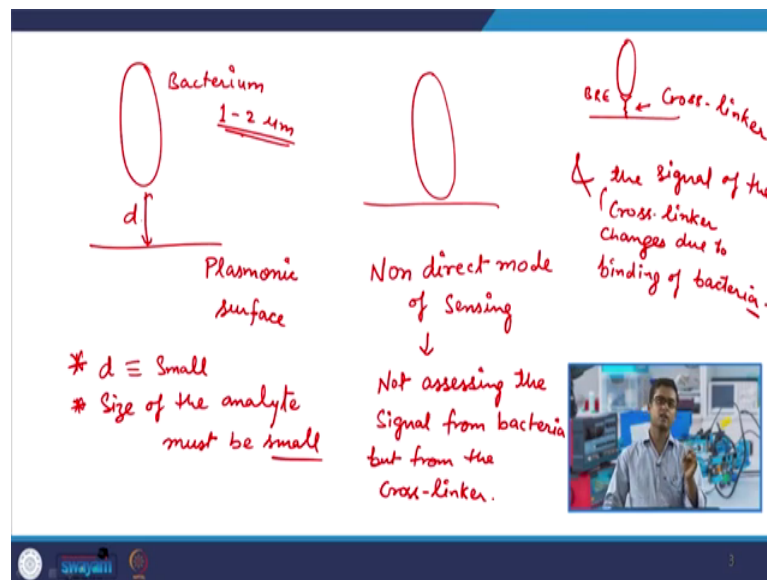 Bacterium
1-2 μm
d
Plasmonic
surface
* d ≡ Small
* Size of the analyte
must be small
Non direct mode
of sensing
↓
Not assessing the
signal from bacteria
but from the
Cross-linker.
BRE
← Cross-linker
the signal of the
Cross-linker
changes due to
binding of bacteria.
swayam
3